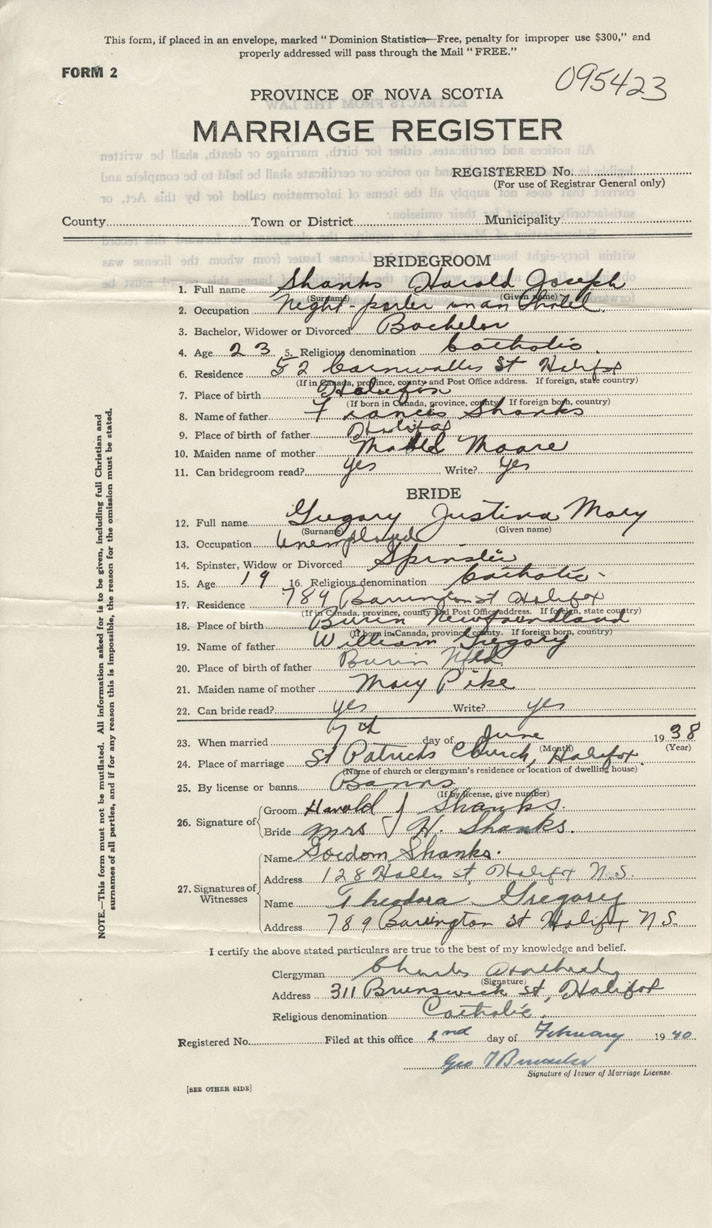 This form, if placed in an envelope, marked "Dominion Statistics—Free, penalty for improper use $300," and
properly addressed will pass through the Mail "FREE."
FORM 2
095423
PROVINCE OF NOVA SCOTIA
MARRIAGE REGISTER
REGISTERED No.
(For use of Registrar General only)
County Town or District Municipality
BRIDEGROOM
1. Full name Shanks Harold Joseph
(Surname) (Given name)
2. Occupation Night-porter in an hotel.
3. Bachelor, Widower or Divorced Bachelor
4. Age 23 5. Religious denomination Catholic.
6. Residence 52 Cornwallis St Halifax
(If in Canada, province, county and Post Office address. If foreign, state country)
7. Place of birth Halifax
(If born in Canada, province, county. If foreign born, country)
8. Name of father Francis Shanks
9. Place of father Halifax
10. Maiden name of mother Moore
11. Can bridegroom read? yes Write? yes
BRIDE
12. Full name Gregory Justina Mary
(Surname) (Given name)
13. Occupation Unemployed
14. Spinster, Widow or Divorced Spinster
15. Age 19 16. Religious denomination Catholic-
17. Residence 789 Barrington St Halifax
(If in Canada, province, county and Post Office address. If foreign, state country)
18. Place of birth Burin Newfoundland
(If born in Canada, province, county. If foreign born, country)
19. Name of father William Gregory
20. Place of birth of father Burin Nfld
21. Maiden name of mother Mary Pike
22. Can bride read? yes Write? yes
23. When married 7th day of June 1938
(Month) (Year)
24. Place of marriage St Patricks Church, Halifax.
(Name of church or clergyman's residence or location of dwelling house)
25. By license or banns Banns
(If by license, give number)
26. Signature of Groom Harold J Shanks.
Bride Mrs H. Shanks.
27. Signatures of Witnesses Name Gordon Shanks.
Address 128 Hollis st, Halifax N.S.
Name Theodora Gregory
Address 789 Barrington St Halifax N.S.
I certify the above stated particulars are true to the best of my knowledge and belief.
Clergyman Charles
(Signature)
Address 311 Brunswick St, Halifax
Religious denomination Catholic.
Registered No. Filed at this office 2nd day of February 1940
Geo
Signature of Issuer of Marriage License.
[SEE OTHER SIDE]
NOTE.—This form must not be mutilated. All information asked for is to be given, including full Christian and
surnames of all parties, and if for any reason this is impossible, the reason for the omission must be stated.